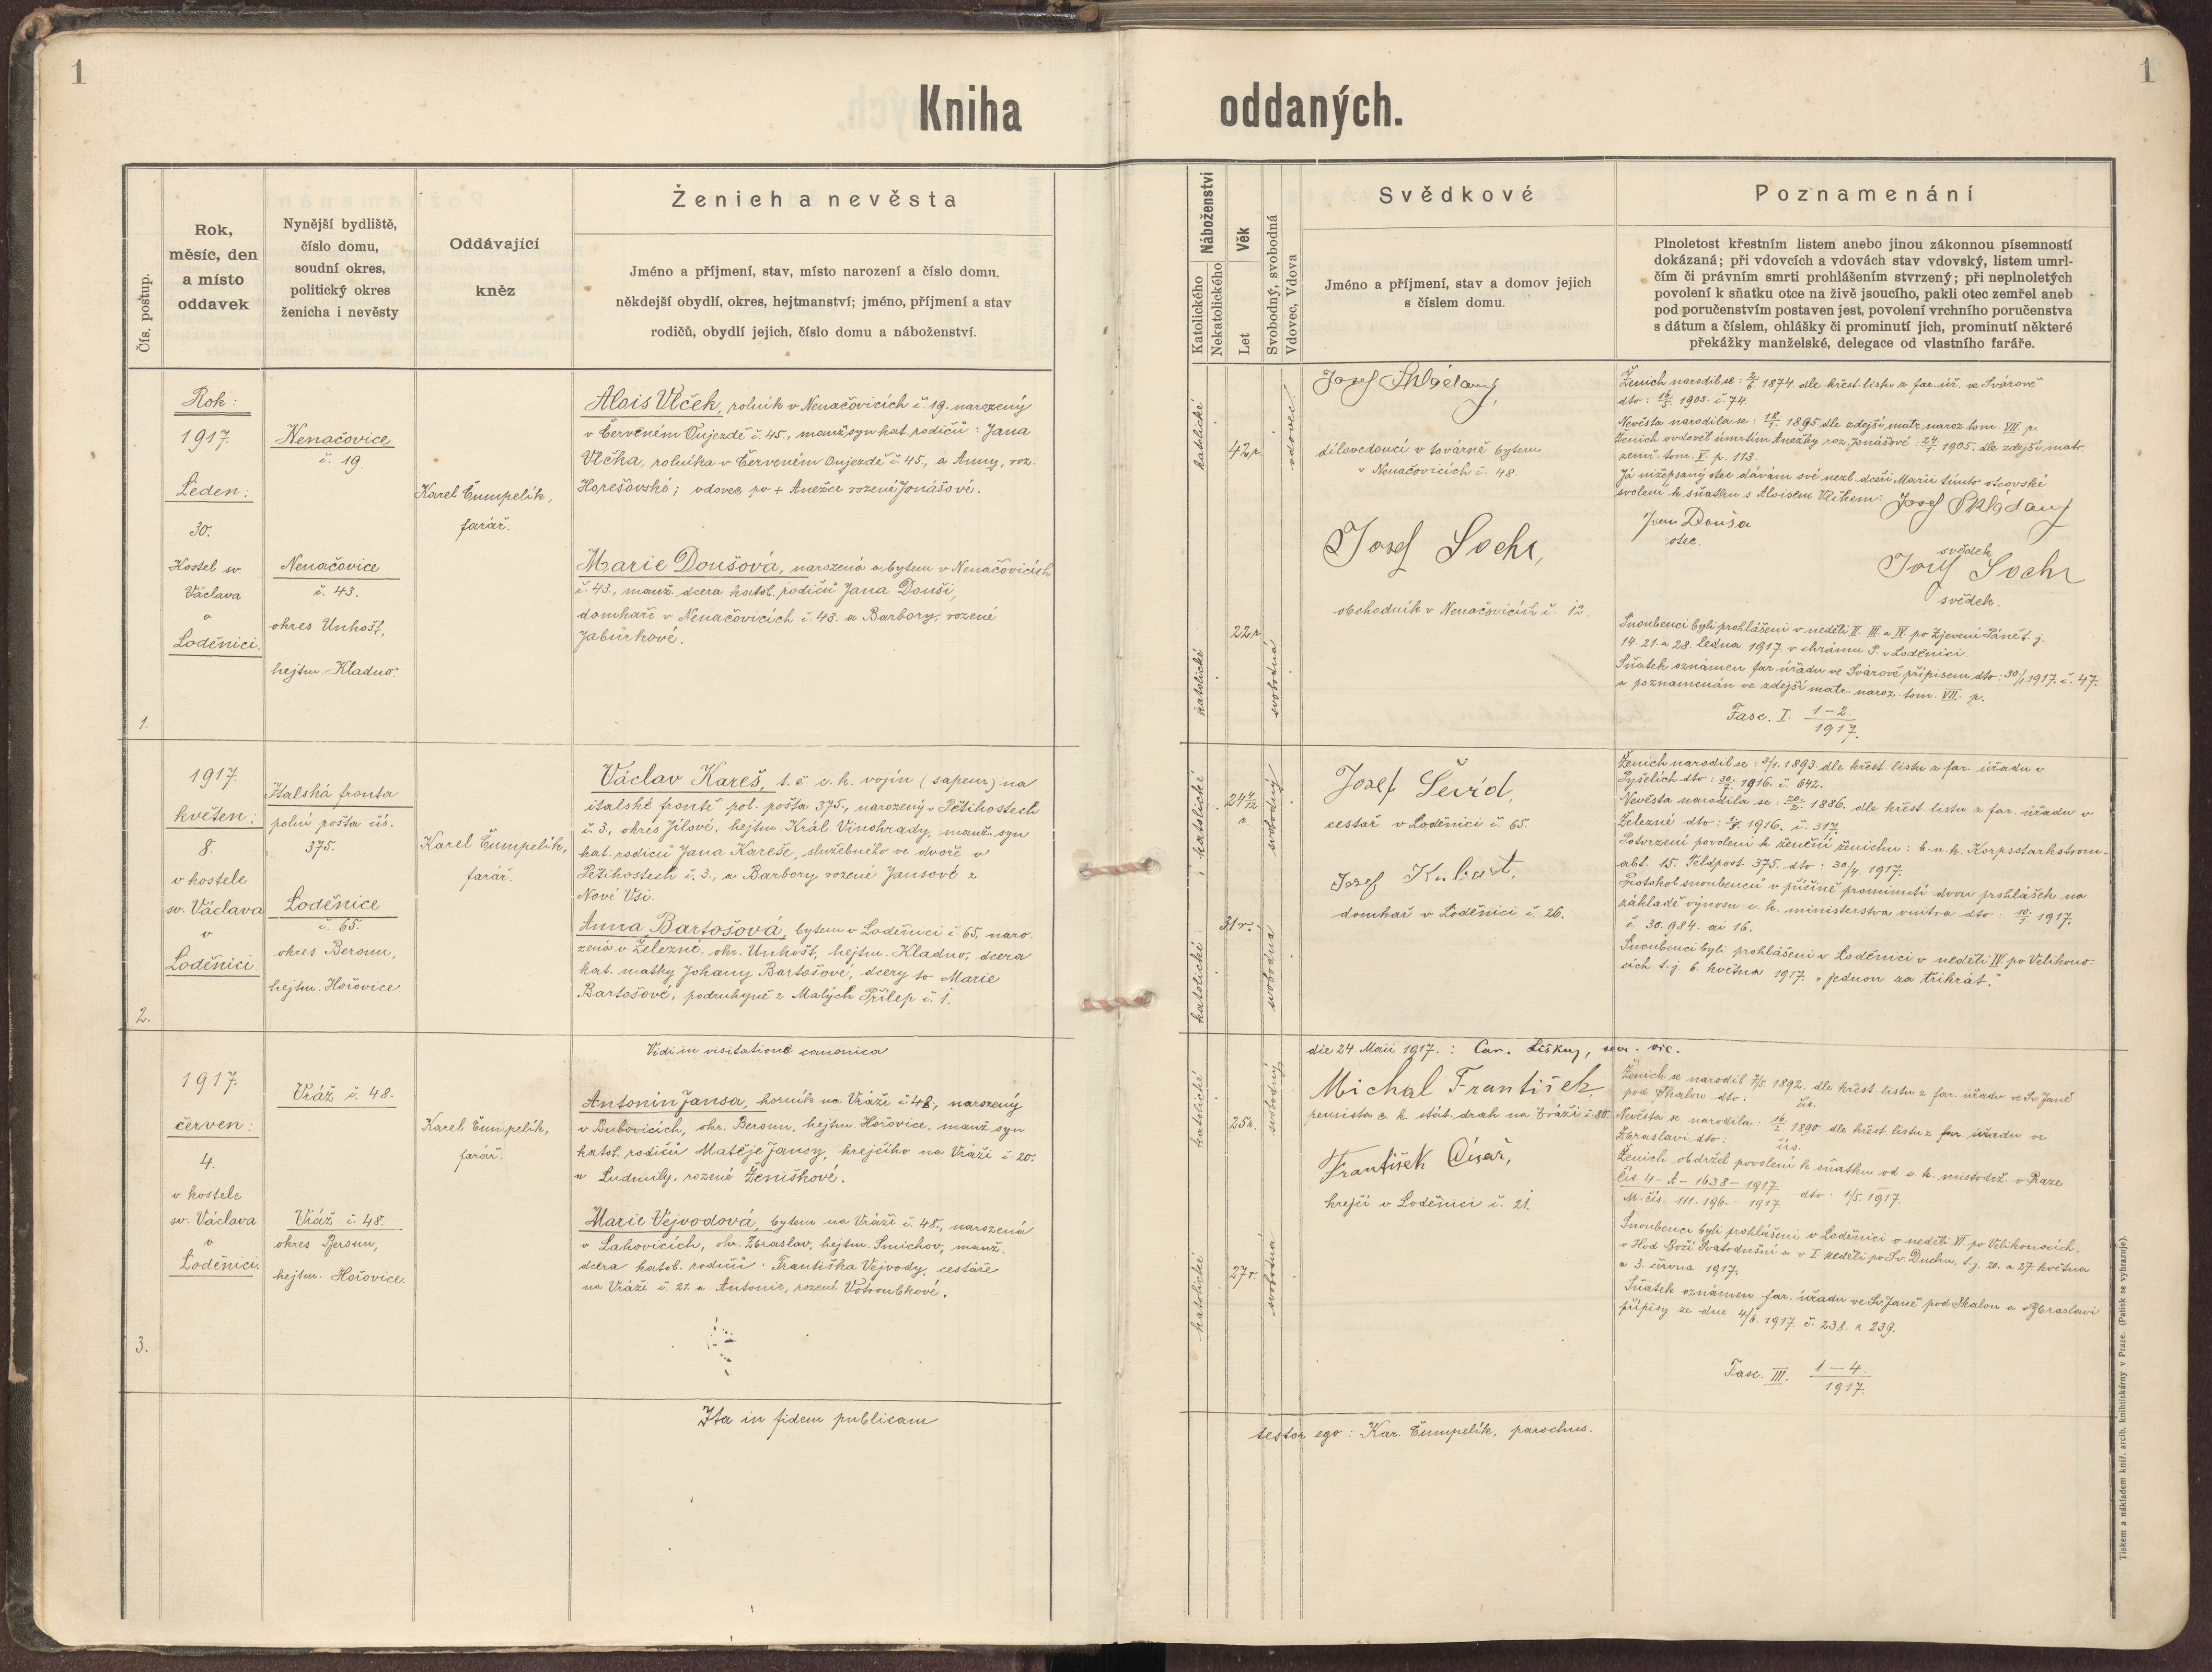 1
1
Kniha
oddaných.
Čís. postup.
Rok,
měsíc, den
a místo
oddavek
Nynější bydliště,
číslo domu,
soudní okres,
politický okres
ženicha i nevěsty
Oddávající
kněz
Ženich a nevěsta
Jméno a příjmení, stav, místo narození a číslo domu,
někdejší obydlí, okres, hejtmanství; jméno, příjmení a stav
rodičů, obydlí jejich, číslo domu a náboženství.
Náboženství
Katolického
Nekatolického
Věk
Let
Svobodný, svobodná
Vdovec, Vdova
Svědkové
Jméno a příjmení, stav a domov jejich
s číslem domu.
Poznamenání
Plnoletost křestním listem anebo jinou zákonnou písemností
dokázaná; při vdovcích a vdovách stav vdovský, listem umrl-
čím či právním smrti prohlášením stvrzený; při neplnoletých
povolení k sňatku otce na živě jsoucího, pakli otec zemřel aneb
pod poručenstvím postaven jest, povolení vrchního poručenstva
s dátum a číslem, ohlášky či prominutí jich, prominutí některé
překážky manželské, delegace od vlastního faráře.
1.
Rok:
1917.
Leden:
30.
Kostel sv.
Václava
v
Loděnici.
Nenačovice
č. 19
Nenačovice
č. 43.
okres Unhošť,
hejtm. Kladno.
Karel Čumpelík,
farář.
Alois Vlček, rolník v Nenačovicích č. 19. narozený
v Červeném Oujezdě č. 45., manž. syn kat. rodičů: Jana
Vlčka, rolníka v Červeném Oujezdě č. 45., a Anny, roz.
Horešovské; vdovec po + Anežce rozené Jonášové.
Marie Doušová, narozená a bytem v Nenačovicích
č. 43., manž. dcera katol. rodičů Jana Douši,
domkaře v Nenačovicích č. 43. a Barbory, rozené
Jabůrkové.
katolické
42 r.
vdovec.
katolické
22 r.
svobodná
Josef Skládaný,
dílovedoucí v továrně bytem
v Nenačovicích č. 48
Josef Sochr,
obchodník v Nenačovicích č. 12.
Ženich narodil se: 2/6 1874. dle křest. listu z far. úř. ve Svárově
dto: 16/5. 1903. č. 74.
Nevěsta narodila se: 18/1. 1895 dle zdejší matr. naroz. tom. VII. p.
Ženich ovdověl úmrtím Anežky roz. Jonášové: 24/1. 1905. dle zdejší matr.
zemř. tom. V. p. 113.
Já nížepsaný otec dávám své nezl. dceři Marii tímto otcovské
svolení k sňatku s Aloisem Vlčkem: Josef Skládaný
Jan Douša
otec.
svědek
Josef Sochr
svědek.
Snoubenci byli prohlášeni v neděli II. III. a IV. po Zjevení Páně t. j.
14. 21. a 28. ledna 1917. v chrámu P. v Loděnici.
Sňatek oznámen far. úřadu ve Svárově přípisem dto: 30/1 1917. č. 47.
a poznamenán ve zdejší matr. naroz. tom. VII. p.
Fasc. I. 1-2./1917.
2.
1917.
květen:
8.
v kostele
sv. Václava
v
Loděnici.
Italská fronta
polní pošta čís.
375.
Loděnice
č. 65.
okres Beroun,
hejtm. Hořovice.
Karel Čumpelík,
farář.
Václav Kareš, t. č. c. k. vojín (sapeur) na
italské frontě pol. pošta 375., narozený v Pětihostech
č. 3., okres Jílové, hejtm. Král. Vinohrady, manž. syn
kat. rodičů Jana Kareše, služebného ve dvoře v
Pětihostech č. 3., a Barbory rozené Jansové z
Nové Vsi.
Anna Bartošová, bytem v Loděnici č. 65., naro-
zená v Železné, okr. Unhošť, hejtm. Kladno, dcera
kat. matky Johany Bartošové, dcery to Marie
Bartošové, podruhyně z Malých Přílep č. 1.
katolické
24 4/12
r.
svobodný
katolické
31 r.
svobodna
JosefŠevid,
cestař v Loděnici č. 65.
Josef Kubart,
domkař v Loděnici č. 26.
Ženich narodil se: 3/1. 1893. dle křest. listu z far. úřadu v
Pyšelích dto: 30/7. 1916. č. 642.
Nevěsta narodila se: 20/2. 1886. dle křest. listu z far. úřadu v
Železné dto: 1/8. 1916. č. 317.
Potvrzení povolení k ženění ženichu: k. u. k. Korpsstarkstrom-
abt. 15. Feldpost 375. dto: 30/4. 1917.
Protokol snoubenců v příčině prominutí dvou prohlášek na
základě výnosu c. k. ministerstva vnitra dto: 10/1 1917.
č. 30.984. ai 16.
Snoubenci byli prohlášeni v Loděnici v neděli IV. po Velikono-
cích t. j. 6. května 1917. „jednou za třikrát."
Vidi in visitatione canonica
die 24. Maii 1917.: Car. Liškuj, secr. vic.
3.
1917.
červen:
4.
v kostele
sv. Václava
v
Loděnici.
Vráž č. 48.
Vráž č. 48.
okres Beroun,
hejtm. Hořovice.
Karel Čumpelík,
farář.
Antonín Jansa, horník na Vráži č. 48., narozený
v Bubovicích, okr. Beroun, hejtm. Hořovice, manž. syn
katol. rodičů Matěje Jansy, krejčího na Vráži č. 20.
a Ludmily, rozené Ženíškové.
Marie Vejvodová, bytem na Vráži č. 48., narozená
v Lahovicích, okr. Zbraslav, hejtm. Smíchov, manž.
dcera katol. rodičů: Františka Vejvody, cestáře
na Vráži č. 21. a Antonie, rozené Votroubkové.
katolické
25 r.
svobodný
katolické
27 r.
svobodná
Michal František,
pensista c. k. stát. drah na Vráži č. 80.
František Císař,
krejčí v Loděnici č. 21.
Ženich se narodil 7/5. 1892. dle křest. listu z far. úřadu ve Sv. Janě
pod Skalou dto: čís.
Nevěsta se narodila: 16/2. 1890 dle křest. listu z far. úřadu ve
Zbraslavi dto: čís.
Ženich obdržel povolení k sňatku od c. k. místodrž. v Praze
čís. 4-A-1638-1917.
M. čís. 111.196.-1917. dto: 1/5. 1917.
Snoubenci byli prohlášeni v Loděnici v neděli VI. po Velikonocích,
v Hod Boží Svatodušní a v I neděli po Sv. Duchu, t. j. 20. a 27. května
a 3. června 1917.
Sňatek oznámen far. úřadu ve Sv. Janě pod Skalou a v Zbraslavi
přípisy ze dne 4/6. 1917. č. 238. a 239.
Fasc. III. 1-4./1917.
Ita in fidem publicam
testor ego: Kar. Čumpelík, parochus.
Tiskem a nákladem kníž. arcib. knihtiskárny v Praze. (Patisk se vyhrazuje).